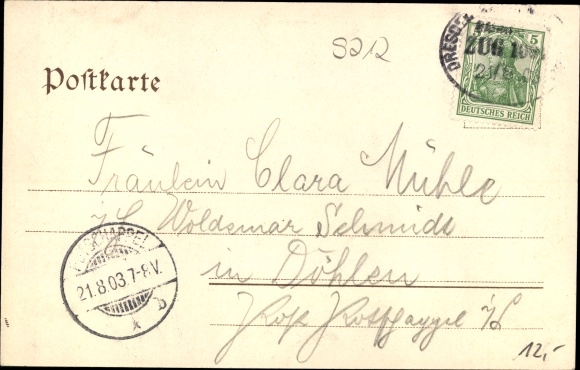 S212
DRESDEN
ZUG 10
21/8
5
DEUTSCHES REICH
Postkarte
Fräulein Clara Mühle
Woldemar Schmidt
POTSCHAPPEL
21.8.03.7-8V.
b
in Döhlen
Potschappel
12,-